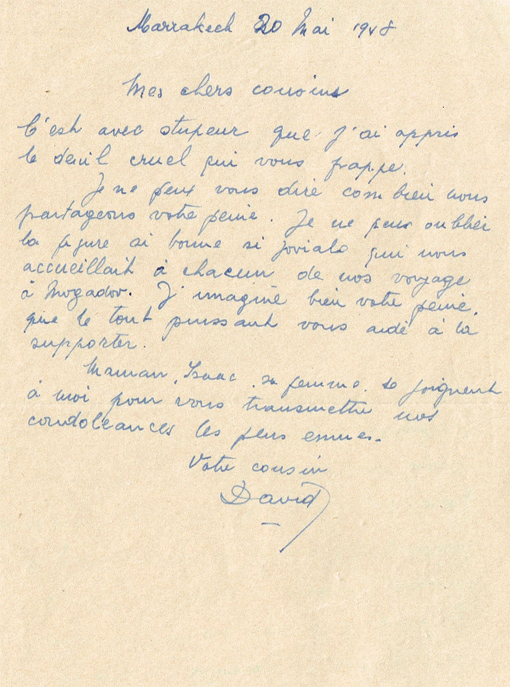 Marrakech 20 Mai 1948
Mes chers cousins
C'est avec stupeur que j'ai appris
le deuil cruel qui vous frappe.
Je ne peux vous dire combien nous
partageons votre peine. Je ne peux oublier
la figure si bonne si joviale qui nous
accueillait à chacun de nos voyage
à Mogador. J'imagine bien votre peine,
que le tout puissant vous aide à la
supporter.
Maman, Isaac, sa femme, se joignent
à moi pour vous transmettre nos
condoléances les plus émues.
Votre cousin
David